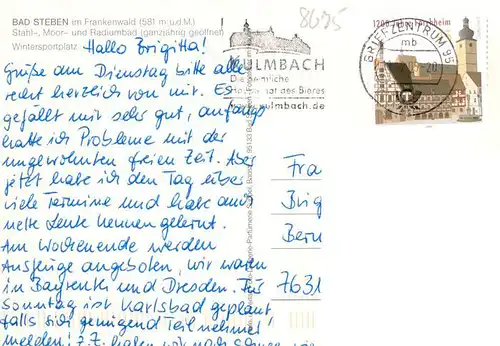 BAD STEBEN im Frankenwald (581 m ü.d.M.)
Stahl-, Moor- und Radiumbad (ganzjährig geöffnet)
Wintersportplatz
Hallo Brigitta!
Grüße am Dienstag bitte alle
recht herzlich von mir. Es
gefällt mir sehr gut, anfangs
hatte ich Probleme mit der
ungewohnten freien Zeit. Aber
jetzt habe ich den Tag über
viele Termine und habe auch
nette Leute kennen gelernt.
Am Wochenende werden
Ausflüge angeboten, wir waren
in Bayreuth und Dresden. Für
Sonntag ist Karlsbad geplant
falls sich genügend Teilnehmer
melden! Z.Z. haben wir noch Schnee
8695
KULMBACH
Die heimliche
Hauptstadt des Bieres
kulmbach.de
1200 Jahre Forchheim
BRIEFZENTRUM 95
mb
Fra
Brig
Bern
7631